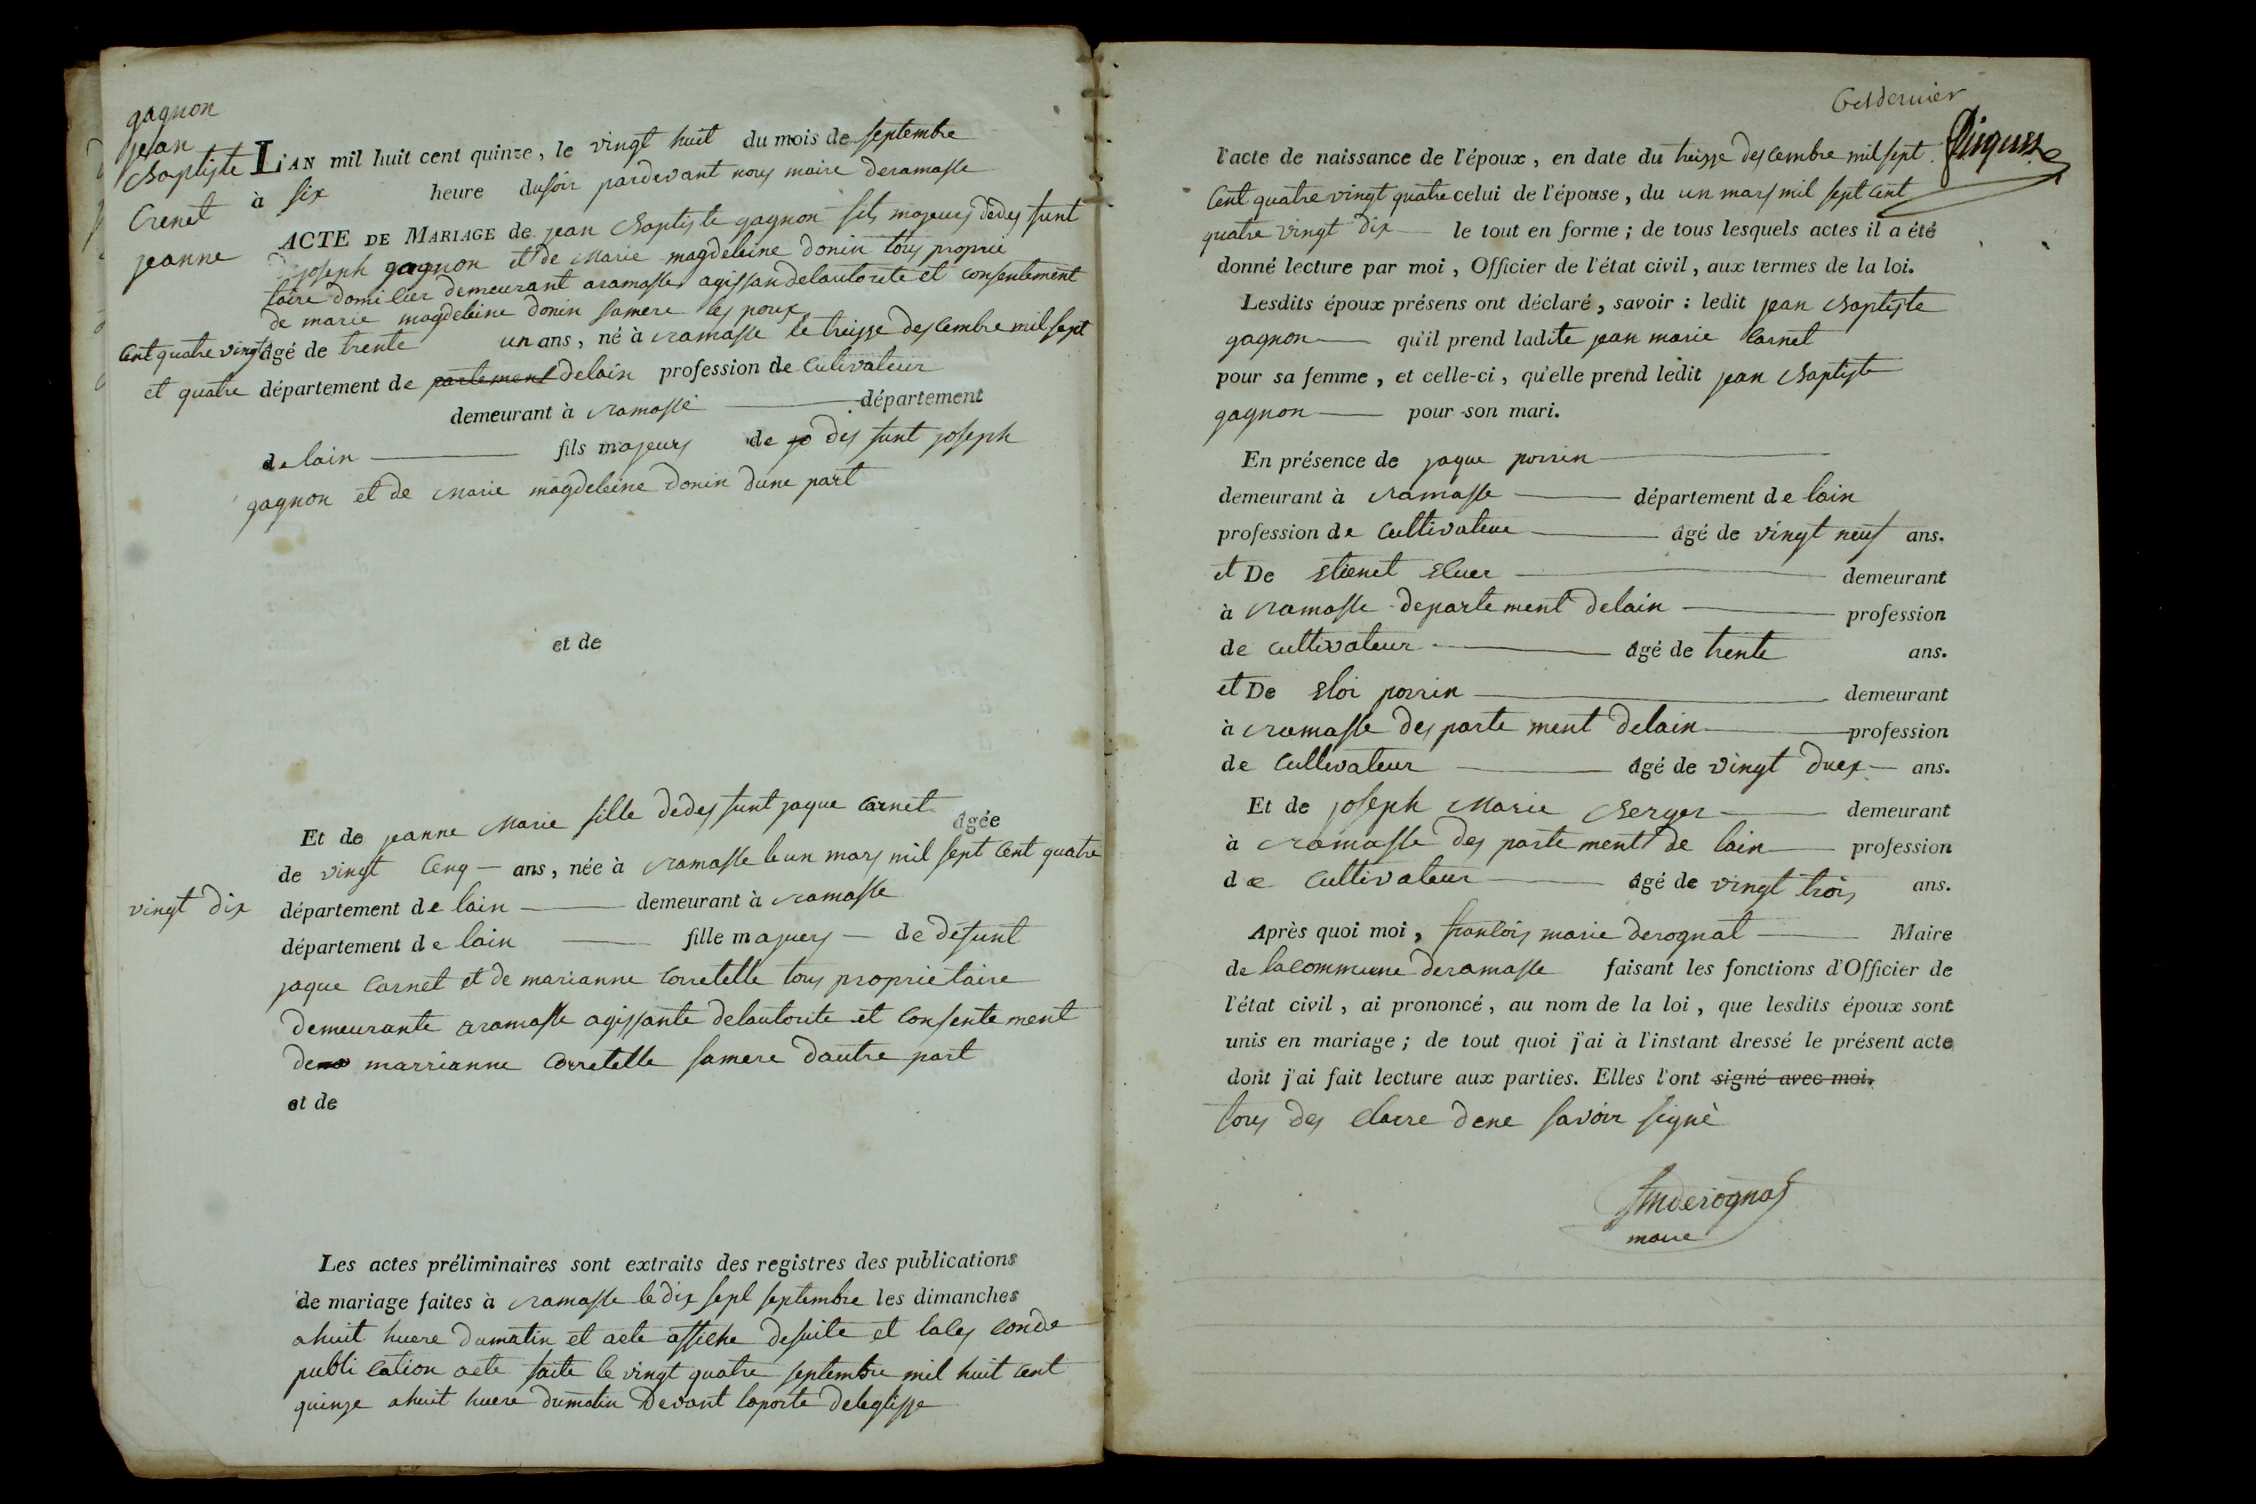 gagnon
jean
Baptiste
Crenet
jeanne
L'AN mil huit cent quinze, le vingt huit du mois de septembre
à six heure dusoir pardevant nous maire deramasse
ACTE DE MARIAGE de jean Baptiste gagnon fils majeurs dedes funt
joseph gagnon et de Marie magdeleine donin tous proprie
taire domilier demeurant aramasse agissan delautorite et consentement
de marie magdeleine donin samere les poux
âgé de trente un ans, né à ramasse le treisse descembre mil sept
Cent quatre vingt
et quatre
département de partement delain profession de Cutivateur
demeurant à ramasse département
de lain fils majeurs de jo des funt joseph
gagnon et de Marie magdeleine donin dune part
et de
Et de jeanne Marie fille dedes funt jaque Carnet âgée
de vingt Cenq ans, née à ramasse le un mars mil sept Cent quatre
vingt dix
département de lain demeurant à ramasse
département de lain fille majuers de défunt
jaque Carnet et de marianne Corretelle tous proprietaire
demeurante aramasse agissante delautorite et Consentement
de marrianne Corretelle samere dautre part
et de
Les actes préliminaires sont extraits des registres des publications
de mariage faites à ramasse le dix sept septembre les dimanches
ahuit huere dumatin et acte affiche desuite et lales conde
publi cation acte faite le vingt quatre septembre mil huit cent
quinze ahuit huere dumatin Devant laporte deleglisse
l'acte de naissance de l'époux, en date du treisse descembre mil sept
Cent quatre vingt quatre celui de l'épouse, du un mars mil sept cent
quatre vingt dix le tout en forme; de tous lesquels actes il a été
donné lecture par moi, Officier de l'état civil, aux termes de la loi.
Lesdits époux présens ont déclaré, savoir : ledit jean Baptiste
gagnon qu'il prend ladite jean marie Carnet
pour sa femme, et celle-ci, qu'elle prend ledit jean Baptiste
gagnon pour son mari.
En présence de jaque porrin
demeurant à ramasse département de lain
profession de Cultivateur âgé de vingt neuf ans.
et De Etienet demeurant
à ramasse departement delain profession
de Cultivateur âgé de trente ans.
et De Eloi porrin demeurant
à ramasse des parte ment delain profession
de Cultivateur âgé de vingt duex ans.
Et de joseph Marie Berger demeurant
à ramasse des parte ment de lain profession
de Cultivateur âgé de vingt trois ans.
Après quoi moi, francois marie derognat Maire
de lacommune deramasse faisant les fonctions d'Officier de
l'état civil, ai prononcé, au nom de la loi, que lesdits époux sont
unis en mariage; de tout quoi j'ai à l'instant dressé le présent acte
dont j'ai fait lecture aux parties. Elles l'ont signé avec moi.
tous des Clarre dene savoir signé
fmderognat
maire